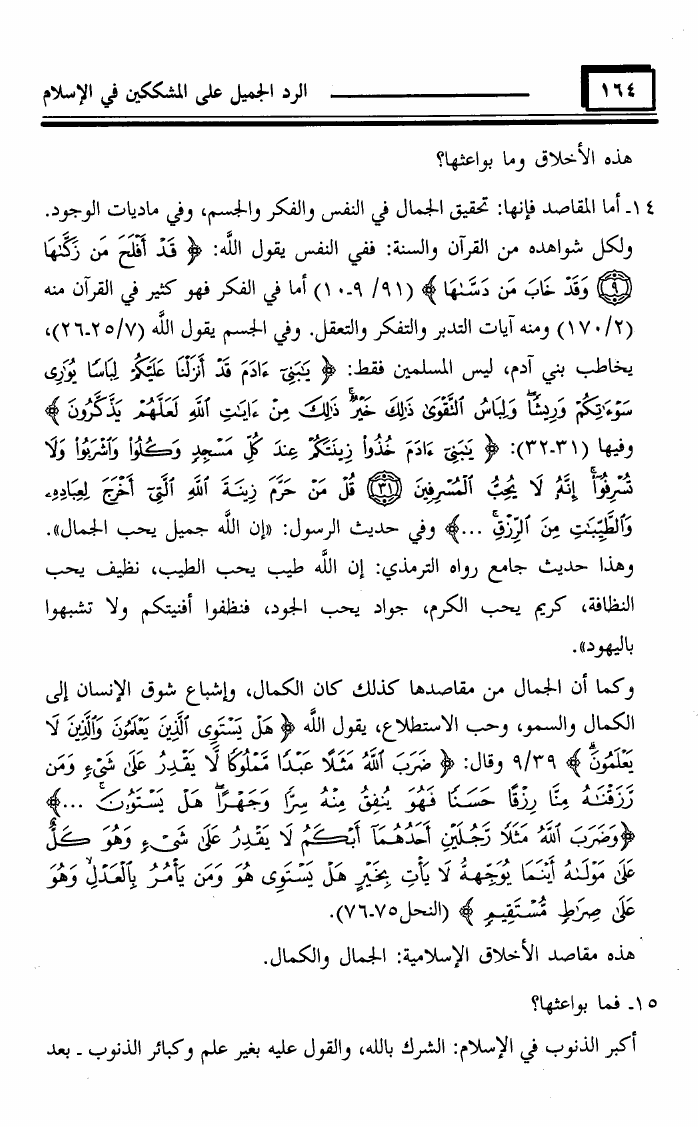 ١٦٤ الرد الجميل على المشككين في الإسلام
هذه الأخلاق وما بواعثها؟
١٤ـ أما المقاصد فإنها: تحقيق الجمال في النفس والفكر والجسم، وفي ماديات الوجود.
ولكل شواهده من القرآن والسنة: ففي النفس يقول اللَّه: ﴿ قَدْ أَفْلَحَ مَن زَكَّىٰهَا
(٩) وَقَدْ خَابَ مَن دَسَّىٰهَا ﴾ (٩١/ ٩ـ١٠) أما في الفكر فهو كثير في القرآن منه
(١٧٠/٢) ومنه آيات التدبر والتفكر والتعقل. وفي الجسم يقول اللَّه (٢٥/٧ـ٢٦)،
يخاطب بني آدم، ليس المسلمين فقط: ﴿ يَٰبَنِىٓ ءَادَمَ قَدْ أَنزَلْنَا عَلَيْكُمْ لِبَاسًا يُوَٰرِى
سَوْءَٰتِكُمْ وَرِيشًا ۖ وَلِبَاسُ ٱلتَّقْوَىٰ ذَٰلِكَ خَيْرٌ ۚ ذَٰلِكَ مِنْ ءَايَٰتِ ٱللَّهِ لَعَلَّهُمْ يَذَّكَّرُونَ ﴾
وفيها (٣١ـ٣٢): ﴿ يَٰبَنِىٓ ءَادَمَ خُذُوا۟ زِينَتَكُمْ عِندَ كُلِّ مَسْجِدٍ وَكُلُوا۟ وَٱشْرَبُوا۟ وَلَا
تُسْرِفُوٓا۟ ۚ إِنَّهُۥ لَا يُحِبُّ ٱلْمُسْرِفِينَ (٣١) قُلْ مَنْ حَرَّمَ زِينَةَ ٱللَّهِ ٱلَّتِىٓ أَخْرَجَ لِعِبَادِهِۦ
وَٱلطَّيِّبَٰتِ مِنَ ٱلرِّزْقِ ۚ ...﴾ وفي حديث الرسول: «إن اللَّه جميل يحب الجمال».
وهذا حديث جامع رواه الترمذي: إن اللَّه طيب يحب الطيب، نظيف يحب
النظافة، كريم يحب الكرم، جواد يحب الجود، فنظفوا أفنيتكم ولا تشبهوا
باليهود».
وكما أن الجمال من مقاصدها كذلك كان الكمال، وإشباع شوق الإنسان إلى
الكمال والسمو، وحب الاستطلاع، يقول اللَّه ﴿ هَلْ يَسْتَوِى ٱلَّذِينَ يَعْلَمُونَ وَٱلَّذِينَ لَا
يَعْلَمُونَ ۗ ﴾ ٩/٣٩ وقال: ﴿ ضَرَبَ ٱللَّهُ مَثَلًا عَبْدًا مَّمْلُوكًا لَّا يَقْدِرُ عَلَىٰ شَىْءٍ وَمَن
رَّزَقْنَٰهُ مِنَّا رِزْقًا حَسَنًا فَهُوَ يُنفِقُ مِنْهُ سِرًّا وَجَهْرًا ۖ هَلْ يَسْتَوُۥنَ ۚ ...﴾
﴿وَضَرَبَ ٱللَّهُ مَثَلًا رَّجُلَيْنِ أَحَدُهُمَآ أَبْكَمُ لَا يَقْدِرُ عَلَىٰ شَىْءٍ وَهُوَ كَلٌّ
عَلَىٰ مَوْلَىٰهُ أَيْنَمَا يُوَجِّههُّ لَا يَأْتِ بِخَيْرٍ هَلْ يَسْتَوِى هُوَ وَمَن يَأْمُرُ بِٱلْعَدْلِ ۙ وَهُوَ
عَلَىٰ صِرَٰطٍ مُّسْتَقِيمٍ ﴾ (النحل٧٥ـ٧٦).
هذه مقاصد الأخلاق الإسلامية: الجمال والكمال.
١٥ـ فما بواعثها؟
أكبر الذنوب في الإسلام: الشرك بالله، والقول عليه بغير علم وكبائر الذنوب ـ بعد